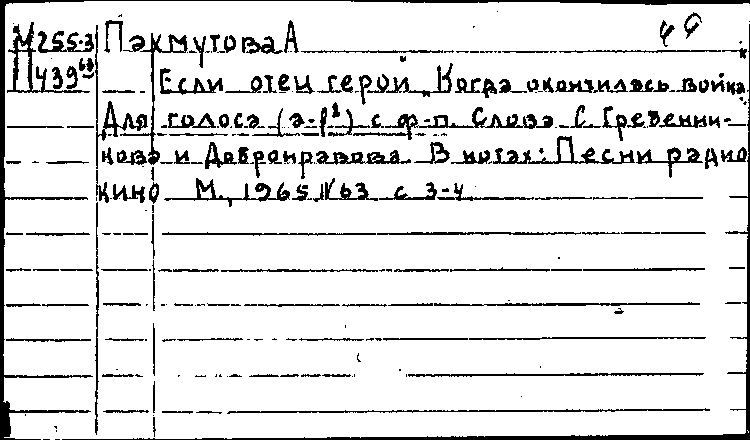 М255.3 Пахмутова А 49
П439⁶⁸ Если отец герой „Когда окончилась война"
Для голоса (a-f²) с ф-п. Слова С. Гребенни-
кова и Добронравова. В нотах: Песни радио
кино М., 1965 №63 с 3-4